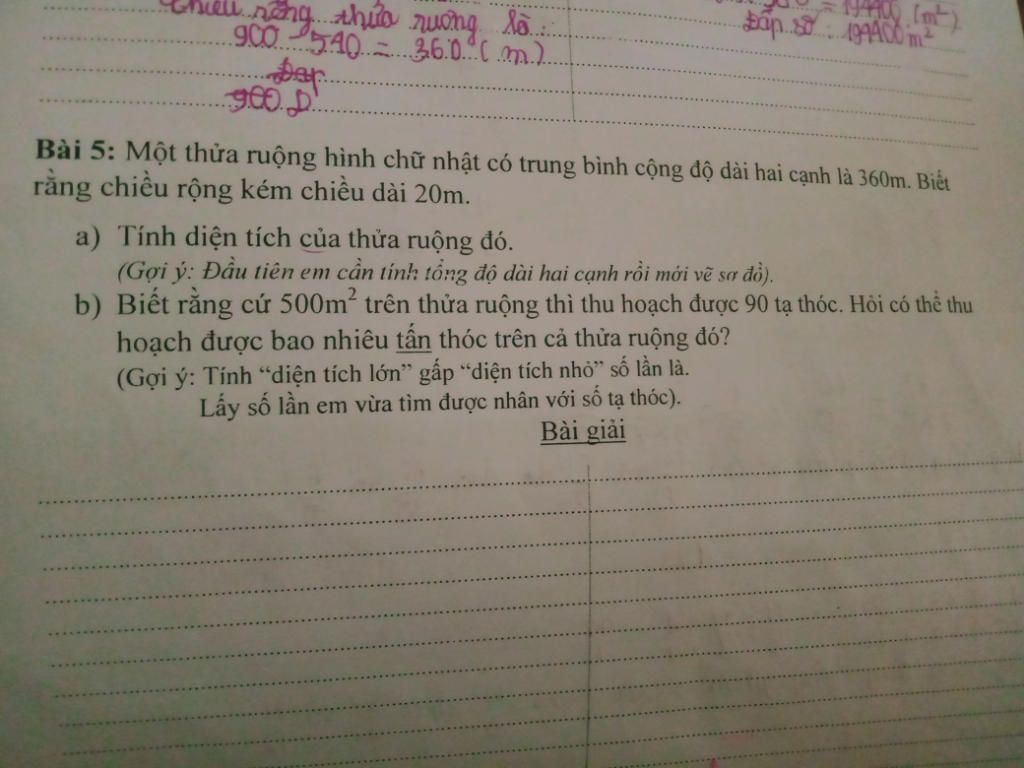 Chiều rộng thửa ruộng là:
900 - 540 = 360 (m)
900 D
= 194400 (m²)
Đáp số: 194400 m²
Bài 5: Một thửa ruộng hình chữ nhật có trung bình cộng độ dài hai cạnh là 360m. Biết
rằng chiều rộng kém chiều dài 20m.
a) Tính diện tích của thửa ruộng đó.
(Gợi ý: Đầu tiên em cần tính tổng độ dài hai cạnh rồi mới vẽ sơ đồ).
b) Biết rằng cứ 500m² trên thửa ruộng thì thu hoạch được 90 tạ thóc. Hỏi có thể thu
hoạch được bao nhiêu tấn thóc trên cả thửa ruộng đó?
(Gợi ý: Tính “diện tích lớn” gấp “diện tích nhỏ” số lần là.
Lấy số lần em vừa tìm được nhân với số tạ thóc).
Bài giải